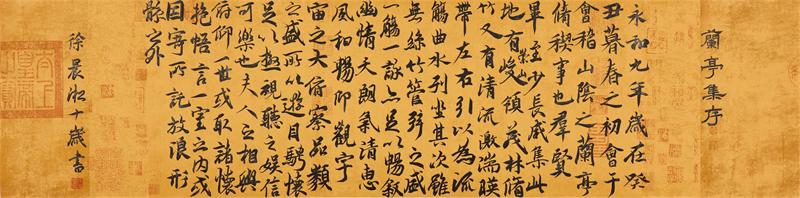 蘭亭集序
永和九年歲在癸
丑暮春之初會于
會稽山陰之蘭亭
脩稧事也群賢
畢至少長咸集此
地有崇山峻領茂林脩
竹又有清流激湍暎
帶左右引以為流
觴曲水列坐其次雖
無絲竹管弦之盛
一觴一詠亦足以暢叙
幽情天朗氣清惠
風和暢仰觀宇
宙之大俯察品類
之盛所以遊目騁懷
足以極視聽之娛信
可樂也夫人之相與
俯仰一世或取諸懷
抱悟言一室之內或
因寄所託放浪形
骸之外
徐晨 十歲書